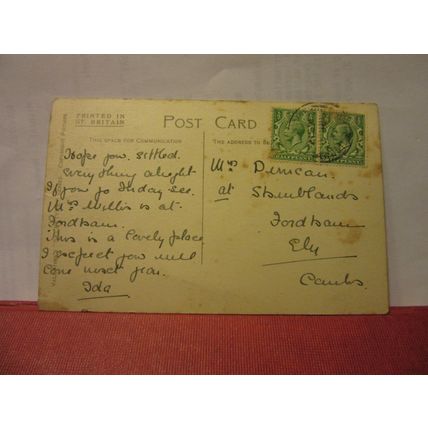 PRINTED IN
GT. BRITAIN
POST CARD
THIS SPACE FOR COMMUNICATION
THE ADDRESS TO BE
HALFPENNY
HALFPENNY
Hope you. sittled.
Every thing alright
If you go Friday see
Mrs Willis is at
Fordham.
This is a lovely place
I expect you will
come next year.
Ida
Mrs Duncan.
at Shrublands
Fordham
Ely
Cambs.